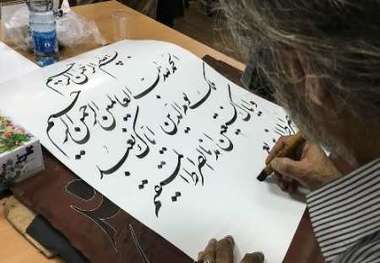 بسم الله الرحمن الرحیم
الحمد لله رب العالمین الرحمن الرحیم
ملک یوم الدین ایاک نعبد
و ایاک نستعین اهدنا الصراط المستقیم